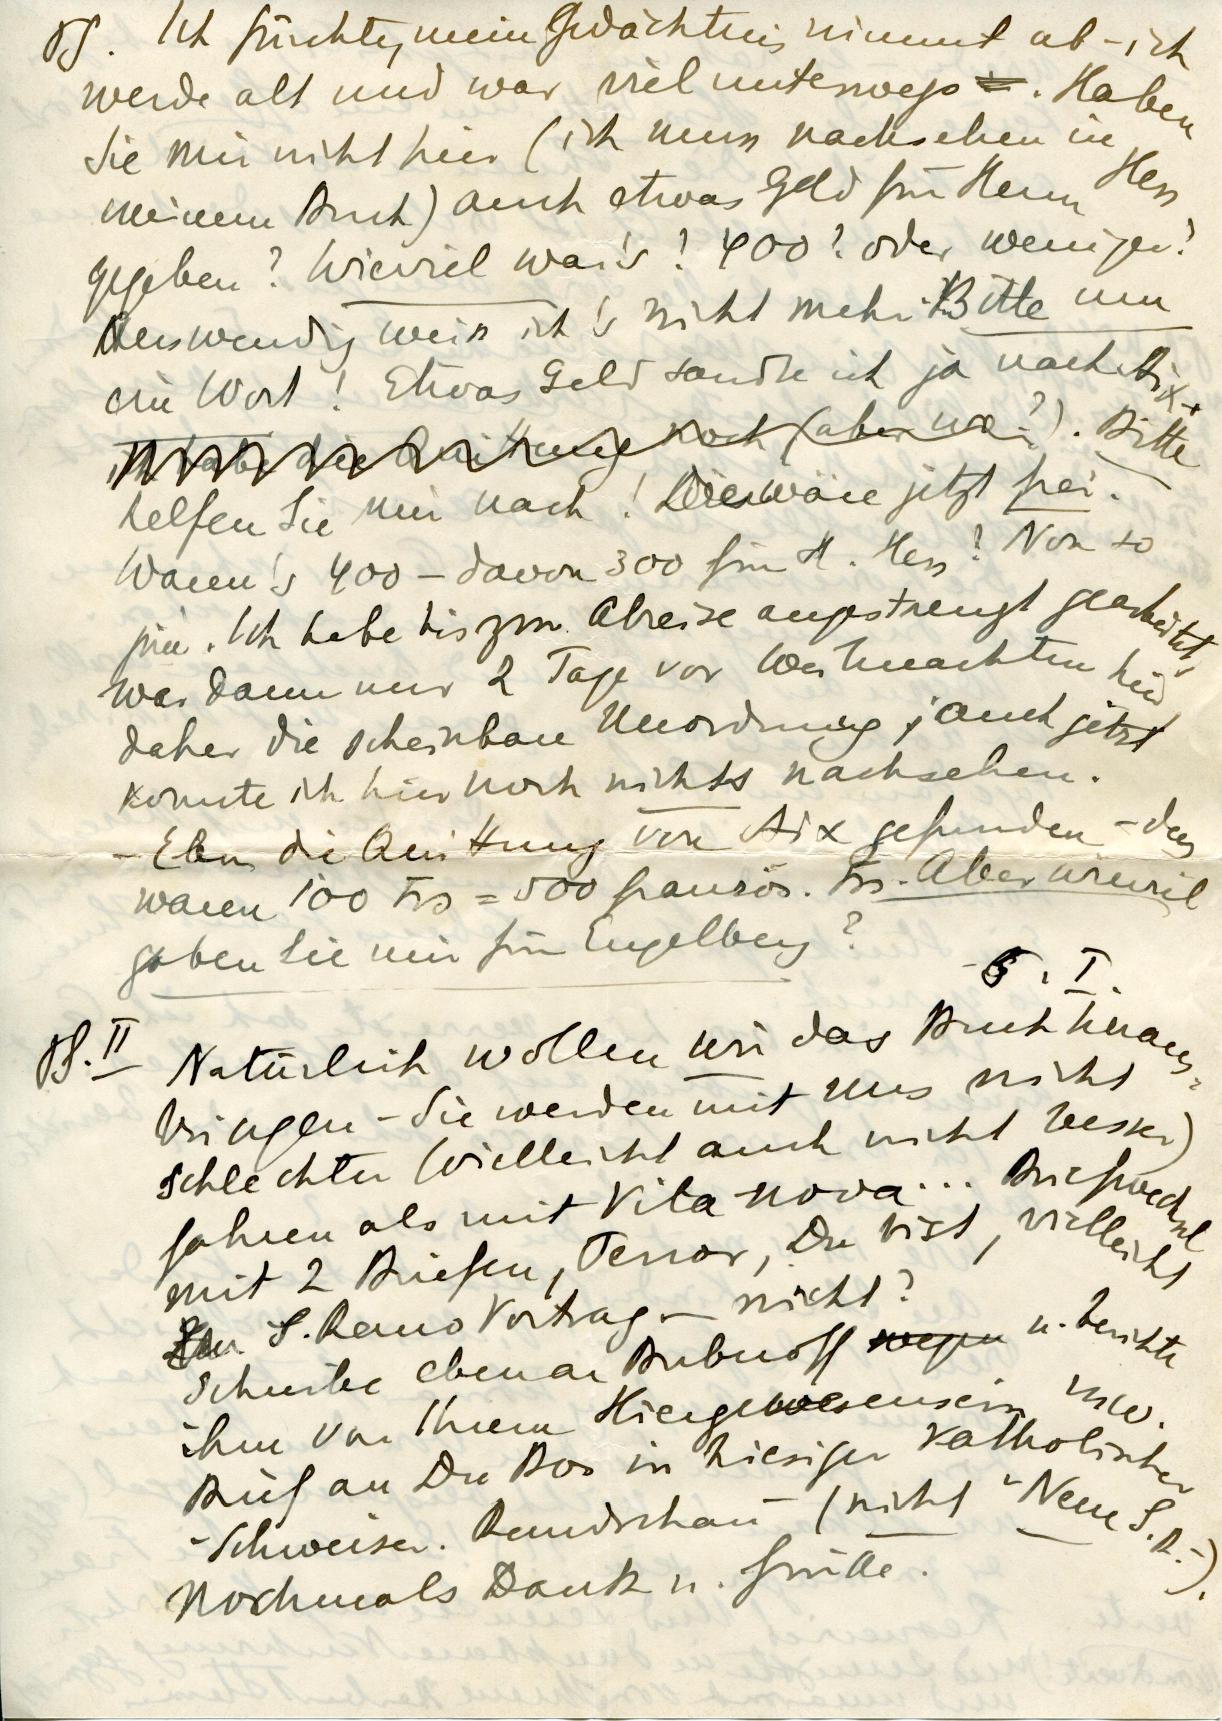 PS. Ich fürchte, mein Gedächtnis nimmt ab – ich
werde alt und war viel unterwegs. Haben
Sie mir nicht hier (ich muss nachsehen in
meinem Buch) auch etwas Geld für Herrn Hess
gegeben? Wieviel war's? 400? oder weniger?
Auswendig weiss ich's nicht mehr. Bitte um
ein Wort! Etwas Geld sandte ich ja nach Aix +
ich habe die Quittung noch (aber wo?). Bitte
helfen Sie mir nach! Dies wäre jetzt frei.
Waren's 400 – davon 300 für H. Hess? Von so
. Ich habe bis zur Abreise angestrengt gearbeitet,
war dann nur 2 Tage vor Weihnachten hier
daher die scheinbare Unordnung, auch jetzt
konnte ich hier noch nichts nachsehen.
– Eben die Quittung von Aix gefunden – das
waren 100 Frs = 500 französ. Frs. Aber wieviel
gaben Sie mir für Engelberg?
5. I.
PS. II Natürlich wollen wir das Buch heraus-
bringen – Sie werden mit uns nicht
schlechter (vielleicht auch nicht besser)
fahren als mit Vita nova... Briefwechsel
mit 2 Briefen, Terror, Du bist, vielleicht
S. Remo Vortrag – nicht?
Schreibe eben an Bubnoff wegen u. berichte
ihm von Ihrem Hiergewesensein usw.
Brief an Du Bos in hiesiger katholischer
"Schweizer. Rundschau" (nicht "Neue S. R.").
Nochmals Dank u. Grüße.